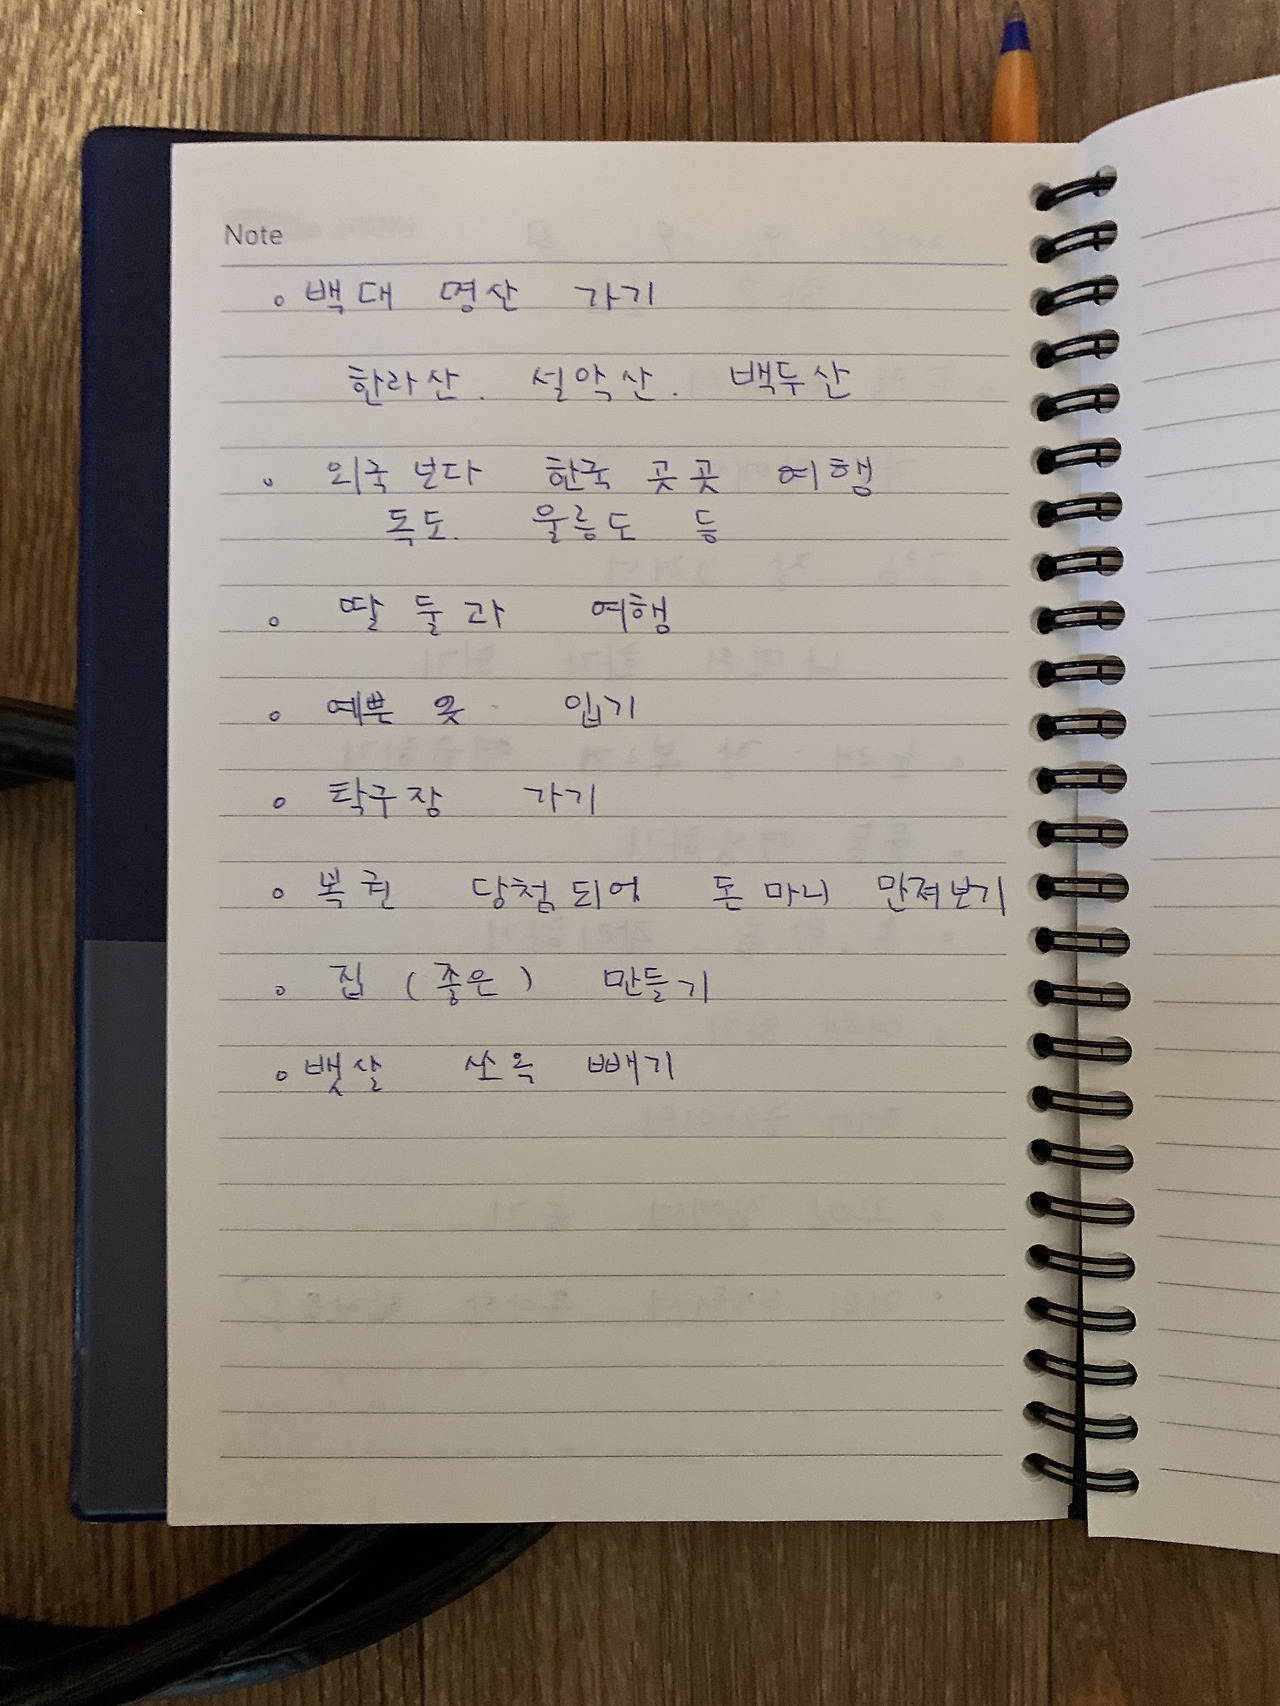 Note
◦ 백대 명산 가기
한라산. 설악산. 백두산
◦ 외국보다 한국 곳곳 여행
독도. 울릉도 등
◦ 딸 둘과 여행
◦ 예쁜 옷 입기
◦ 탁구장 가기
◦ 복권 당첨되어 돈 마니 만져보기
◦ 집 (좋은) 만들기
◦ 뱃살 쏘옥 빼기